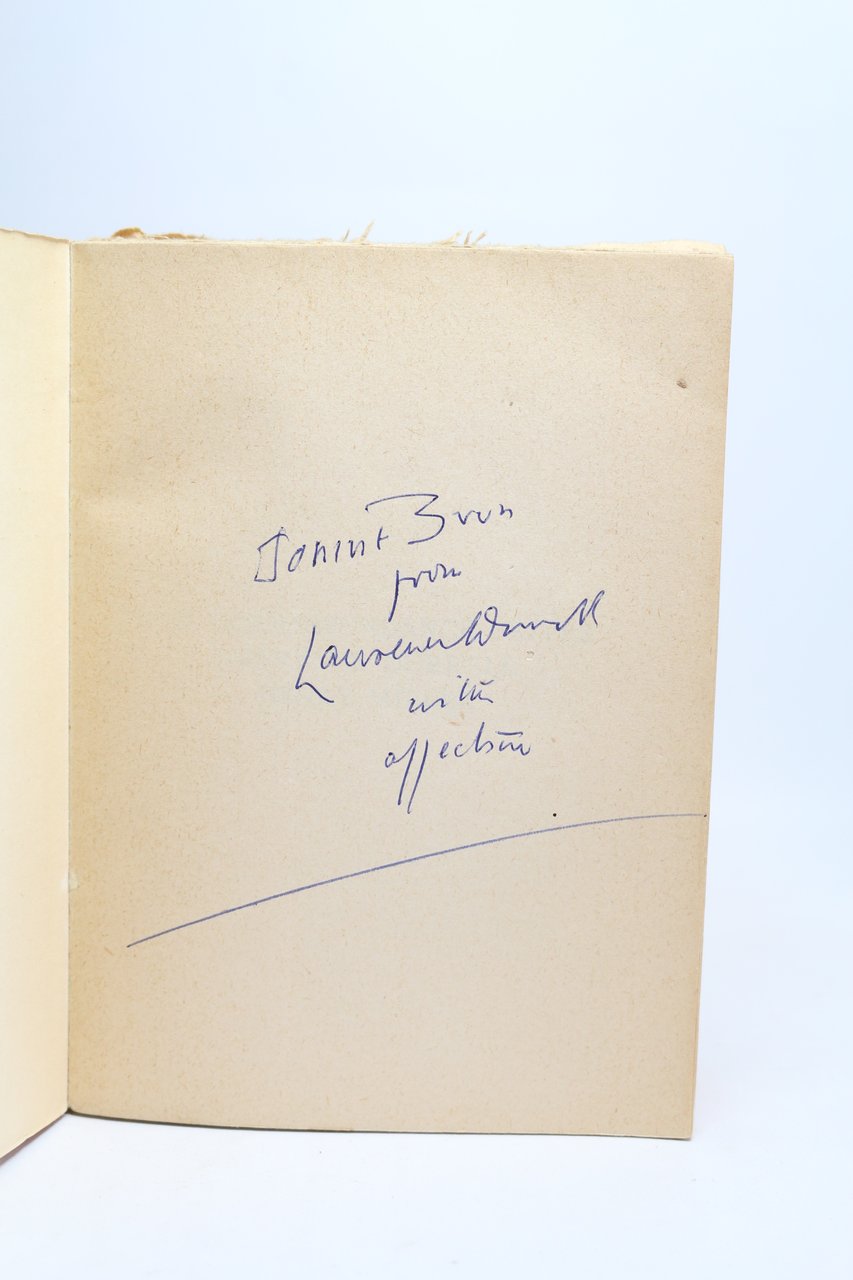 Janine Brun
from
Lawrence Durrell
with
affection